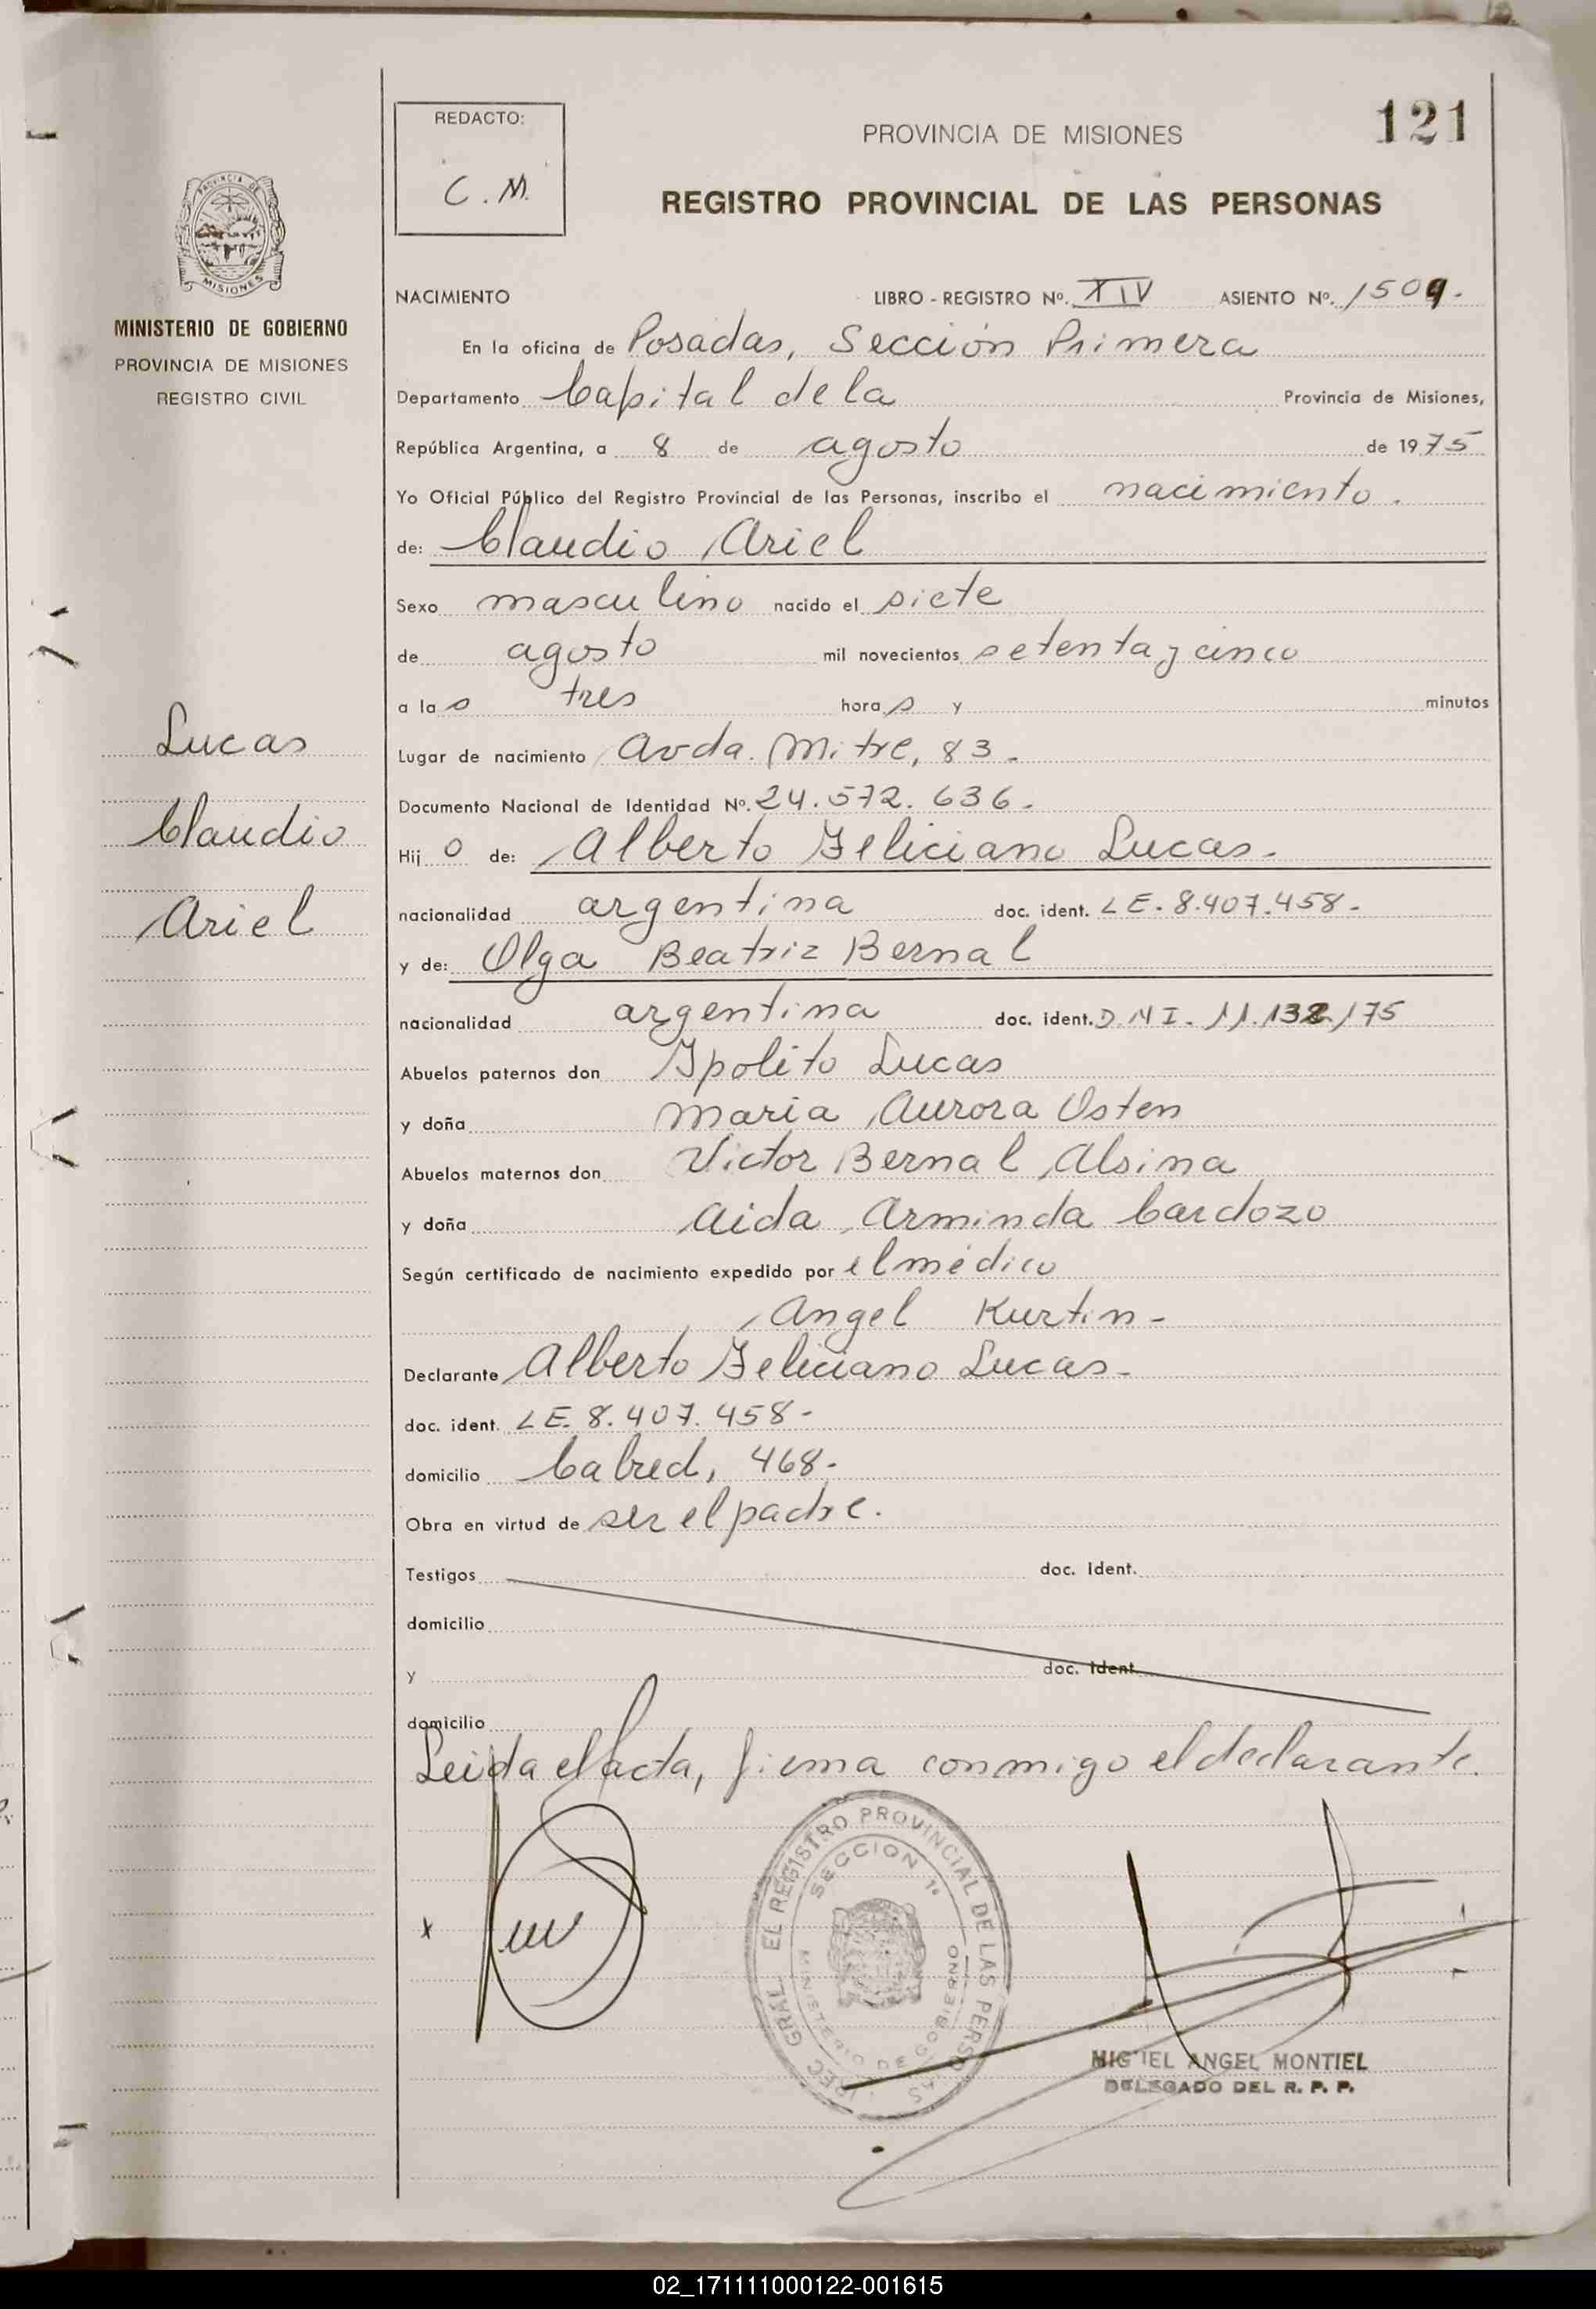 121
REDACTO:
C.M.
PROVINCIA DE MISIONES
REGISTRO PROVINCIAL DE LAS PERSONAS
PROVINCIA DE
MISIONES
MINISTERIO DE GOBIERNO
PROVINCIA DE MISIONES
REGISTRO CIVIL
Lucas
Claudio
Ariel
NACIMIENTO LIBRO - REGISTRO Nº. XIV ASIENTO Nº. 1509.
En la oficina de Posadas, Sección Primera
Departamento Capital de la Provincia de Misiones,
República Argentina, a 8 de agosto de 1975
Yo Oficial Público del Registro Provincial de las Personas, inscribo el nacimiento.
de: Claudio Ariel
Sexo masculino nacido el siete
de agosto mil novecientos setenta y cinco
a las tres horas y minutos
Lugar de nacimiento Avda. Mitre, 83.
Documento Nacional de Identidad Nº. 24.572.636.
Hijo de: Alberto Feliciano Lucas.
nacionalidad argentina doc. ident. LE. 8.407.458.
y de: Olga Beatriz Bernal
nacionalidad argentina doc. ident. D.N I. 11.132.175
Abuelos paternos don Ipolito Lucas
y doña Maria Aurora Osten
Abuelos maternos don Victor Bernal Alsina
y doña Aida Arminda Cardozo
Según certificado de nacimiento expedido por el médico
Angel Kurtin-
Declarante Alberto Feliciano Lucas-
doc. ident. LE. 8.407.458-
domicilio Cabred, 468.
Obra en virtud de ser el padre.
Testigos doc. ident.
domicilio
y doc. ident.
domicilio
Leida el acta, firma conmigo el declarante.
x
GRAL. EL REGISTRO PROVINCIAL DE LAS PERSONAS
SECCION 1ª
MINISTERIO DE GOBIERNO
MIGUEL ANGEL MONTIEL
DELEGADO DEL R. P. P.
02_171111000122-001615